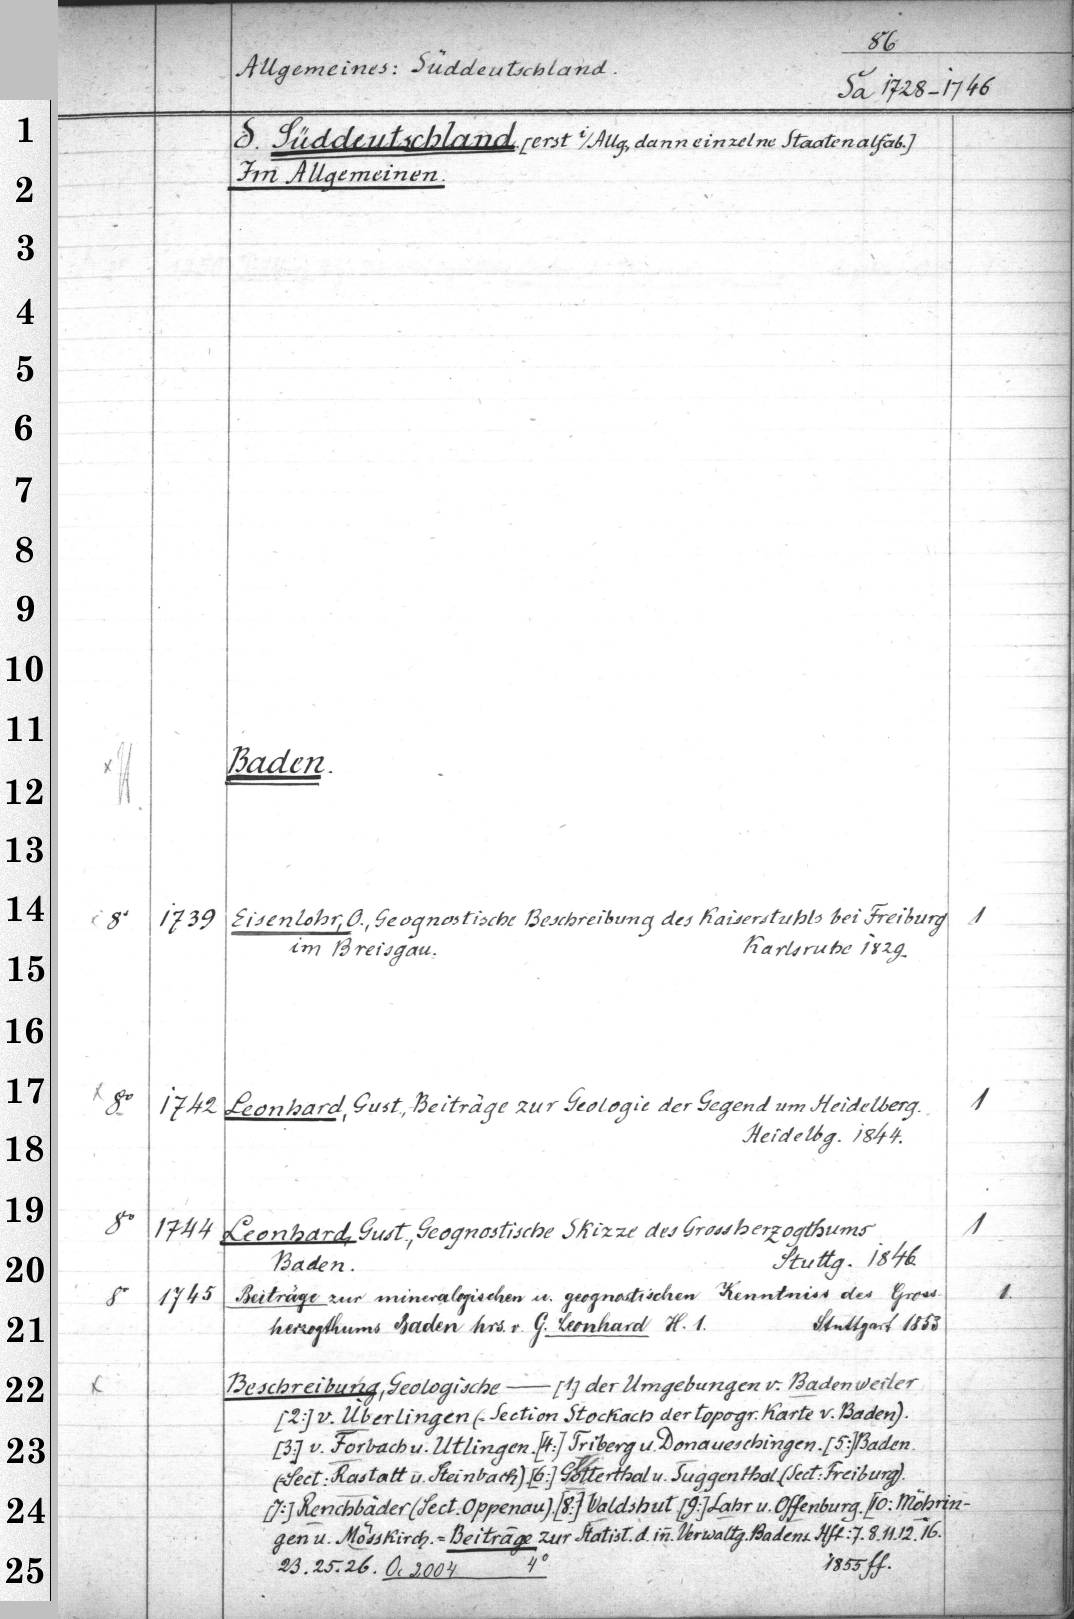 86
Allgemeines: Süddeutschland.
Sa 1728-1746
1
δ. Süddeutschland. [erst i/Allg, dann einzelne Staaten alfab.]
2
Im Allgemeinen.
3
4
5
6
7
8
9
10
11
Baden.
12
13
14
8° 1739 Eisenlohr, O., Geognostische Beschreibung des Kaiserstuhls bei Freiburg 1
im Breisgau. Karlsruhe 1829.
15
16
17
x 8° 1742 Leonhard, Gust., Beiträge zur Geologie der Gegend um Heidelberg. 1
Heidelbg. 1844.
18
19
8° 1744 Leonhard, Gust., Geognostische Skizze des Grossherzogthums 1
20
Baden. Stuttg. 1846
8° 1745 Beiträge zur mineralogischen u. geognostischen Kenntniss des Gross- 1.
21
herzogthums Baden hrs. v. G. Leonhard H. 1. Stuttgart 1853
22
x Beschreibung, Geologische — [1] der Umgebungen v. Badenweiler
[2:] v. Überlingen (= Section Stockach der topogr. Karte v. Baden).
23
[3:] v. Forbach u. [4:] Triberg u. Donaueschingen. [5:] Baden.
(=Sect: Rastatt u. Steinbach) [6:] u. Suggenthal (Sect: Freiburg).
24
[7:] Renchbäder (Sect. Oppenau). [8:] Waldshut [9:] Lahr u. Offenburg. [10: Möhrin-
gen u. Mösskirch. = Beiträge zur Statist. d. in̄. Verwaltg. Badens Hft: 7. 8. 11. 12. 16.
25
23. 25. 26. Oc 2004 4° 1855 ff.